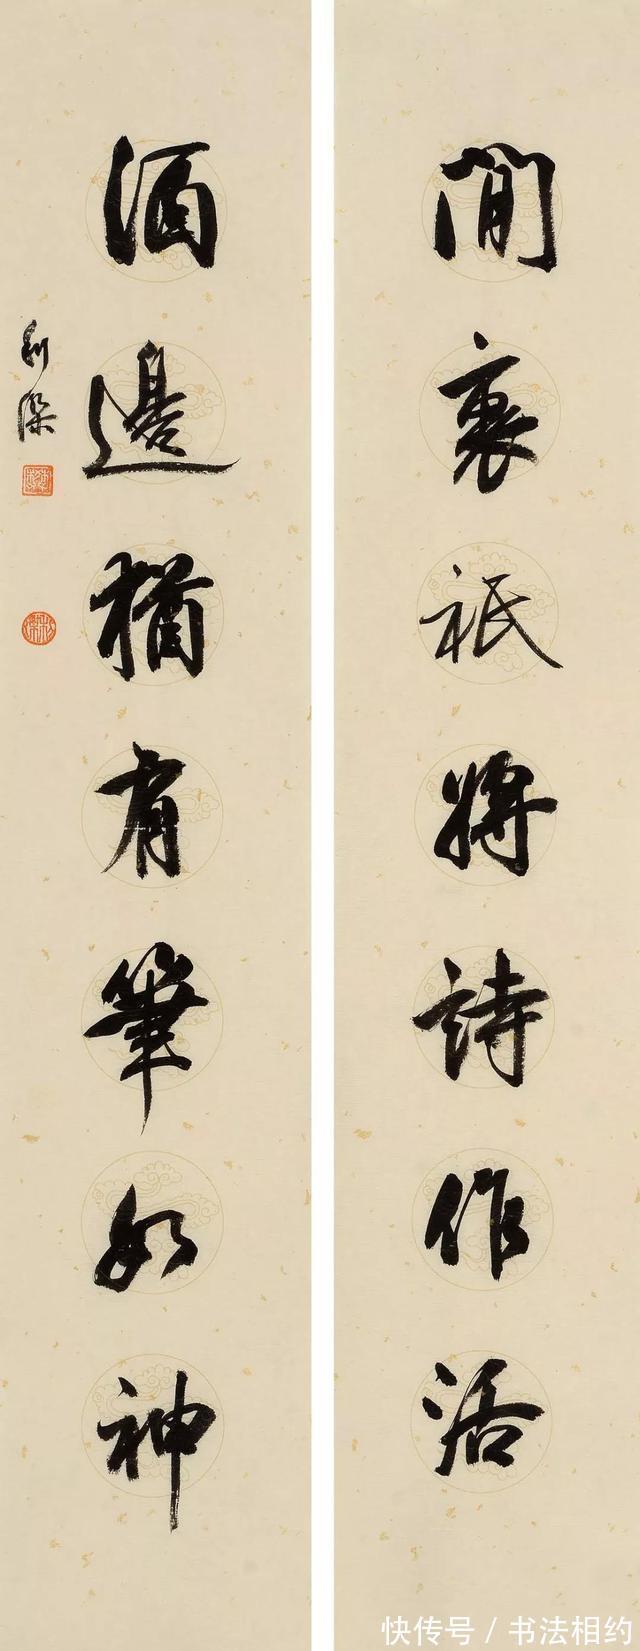 閒裏祇將詩作活
酒邊猶有筆如神
快传号 / 书法相约